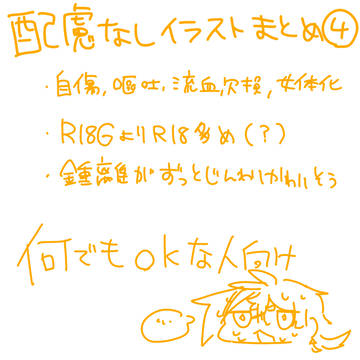 配慮なしイラストまとめ④
・自傷,嘔吐,流血欠損,女体化
・R18GよりR18多め(?)
・鍾離がずっとじんわりかわいそう
何でもokな人向け